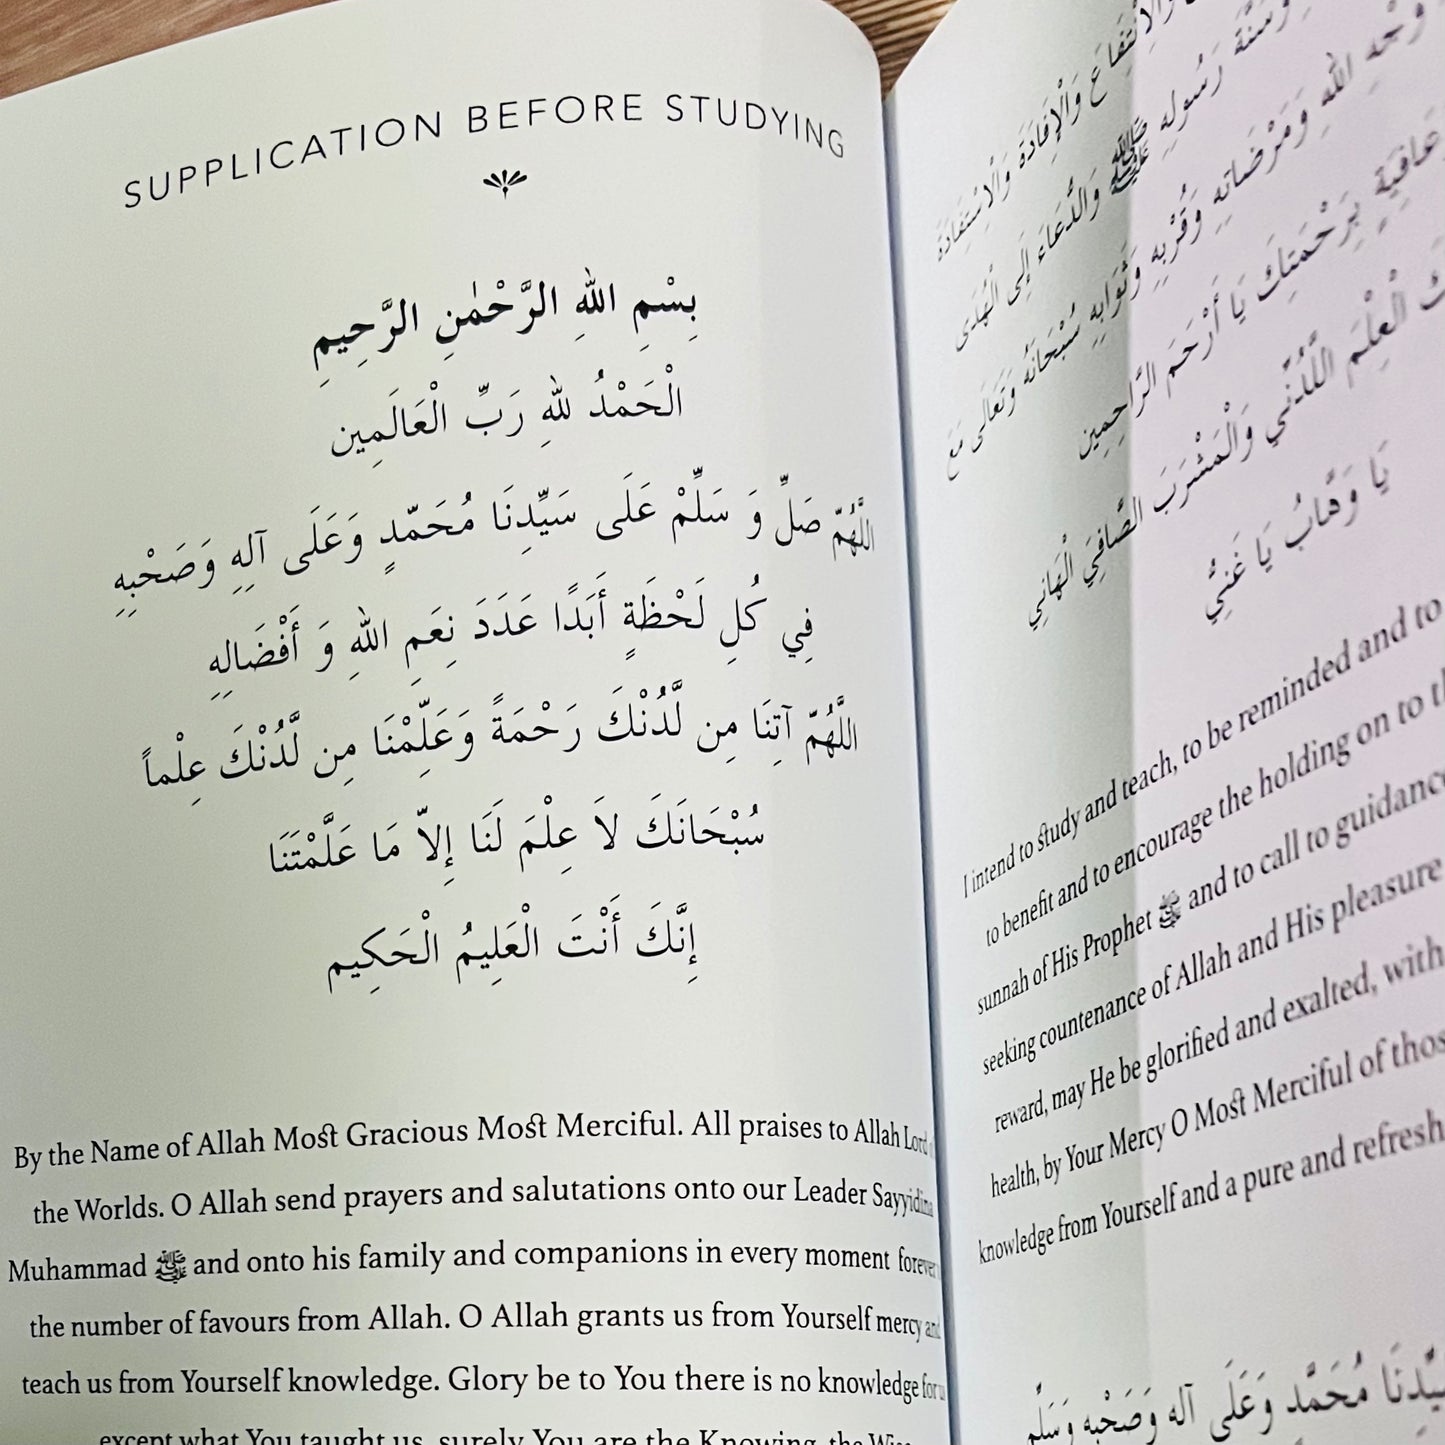 SUPPLICATION BEFORE STUDYING
بِسْمِ اللهِ الرَّحْمٰنِ الرَّحِيمِ
الْحَمْدُ لِلهِ رَبِّ الْعَالَمِين
اللَّهُمّ صَلِّ وَ سَلِّمْ عَلَى سَيِّدِنَا مُحَمّدٍ وَعَلَى آلِهِ وَصَحْبِهِ
فِي كُلِ لَحْظَةٍ أَبَدًا عَدَدَ نِعَمِ اللهِ وَ أَفْضَالِهِ
اللَّهُمّ آتِنَا مِن لَّدُنْكَ رَحْمَةً وَعَلِّمْنَا مِن لَّدُنْكَ عِلْماً
سُبْحَانَكَ لاَ عِلْمَ لَنَا إِلاّ مَا عَلَّمْتَنَا
إِنَّكَ أَنْتَ الْعَلِيمُ الْحَكِيم
By the Name of Allah Most Gracious Most Merciful. All praises to Allah Lord
the Worlds. O Allah send prayers and salutations onto our Leader Sayyidina
Muhammad ﷺ and onto his family and companions in every moment forever
the number of favours from Allah. O Allah grants us from Yourself mercy and
teach us from Yourself knowledge. Glory be to You there is no knowledge for
except what You taught us, surely You are the Knowing, the
وَالْإِفَادَةَ وَالْاِسْتِفَادَةَ
رَسُولِهِ ﷺ وَالدُّعَاءَ إِلَى الْهُدَى
وَجْهِ اللهِ وَمَرْضَاتِهِ وَقُرْبِهِ وَثَوَابِهِ سُبْحَانَهُ وَتَعَالَى مَعَ
عَافِيَةٍ بِرَحْمَتِكَ يَا أَرْحَمَ الرَّاحِمِين
الْعِلْمَ اللَّدُنِّي وَالْمَشْرَبَ الصَّافِيَ الْهَانِي
يَا وَهَّابُ يَا غَنِيُّ
I intend to study and teach, to be reminded and to
to benefit and to encourage the holding on to
sunnah of His Prophet ﷺ and to call to guidance
seeking countenance of Allah and His pleasure
reward, may He be glorified and exalted, with
health, by Your Mercy O Most Merciful of
knowledge from Yourself and a pure and
مُحَمَّد وَعَلَى آله وَصَحْبِه وَسَلّم